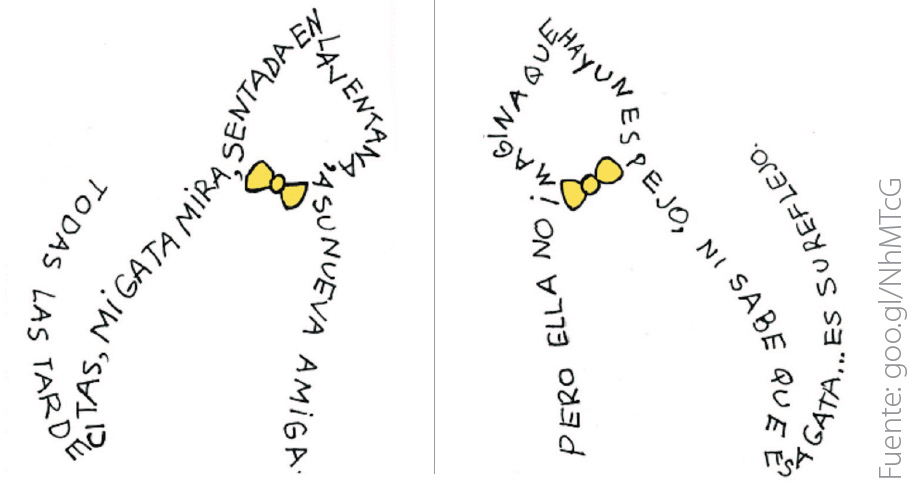 TODAS LAS TARDECITAS, MI GATA MIRA, SENTADA EN LA VENTANA, A SU NUEVA AMIGA.
PERO ELLA NO IMAGINA QUE HAY UN ESPEJO, NI SABE QUE ESA GATA... ES SU REFLEJO.
Fuente: goo.gl/NhMTcG